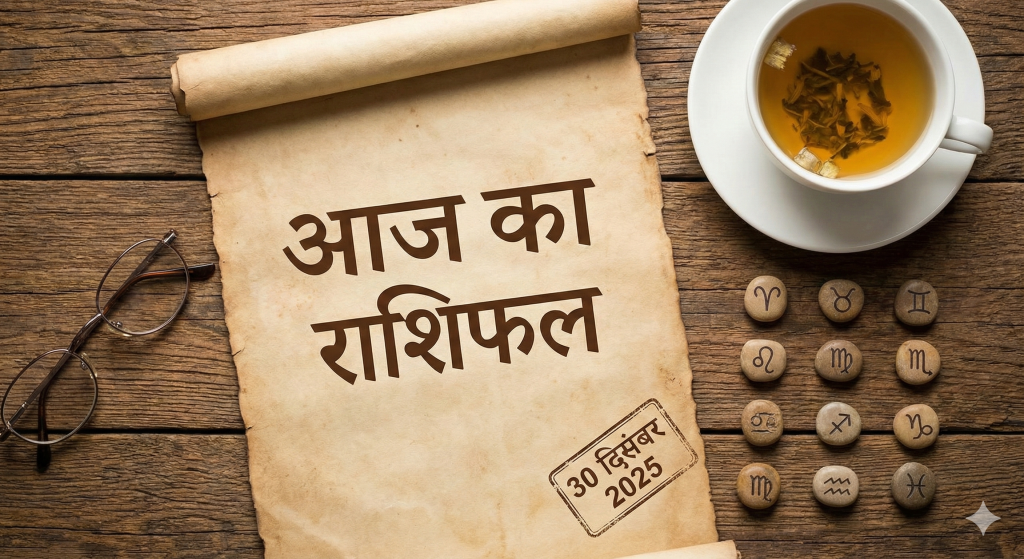 आज का
राशिफल
30 दिसंबर
2025